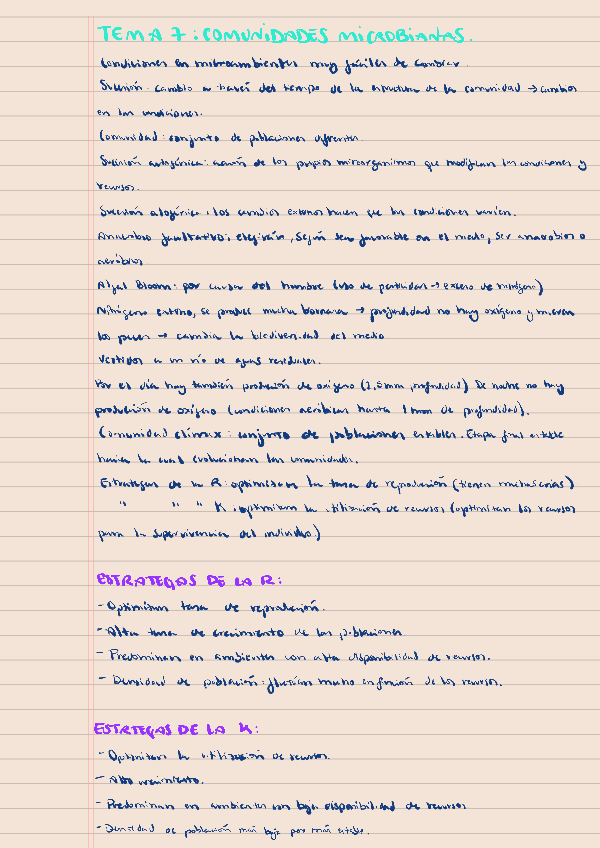 TEMA 7: COMUNIDADES MICROBIANAS.
Condiciones en microambientes muy fáciles de cambiar.
Sucesión: cambio a través del tiempo de la estructura de la comunidad → cambios
en las condiciones.
Comunidad: conjunto de poblaciones diferentes.
Sucesión autogénica: acción de los propios microorganismos que modifican las condiciones y
recursos.
Sucesión alogénica: los cambios externos hacen que las condiciones varíen.
Anaerobio facultativo: elegirán, según sea favorable en el medio, ser anaerobios o
aerobios
Algal Bloom: por causa del hombre (uso de pesticidas → exceso de nitrógeno)
Nitrógeno externo, se produce mucha biomasa → profundidad no hay oxígeno y mueren
los peces → cambia la biodiversidad del medio
Vertidos a un río de aguas residuales.
Por el día hay también producción de oxígeno (2,5mm profundidad) De noche no hay
producción de oxígeno (condiciones aeróbicas hasta 1mm de profundidad).
Comunidad clímax: conjunto de poblaciones estables. Etapa final estable
hacia la cual evolucionan las comunidades.
Estrategas de la R: optimizan la tasa de reproducción (tienen muchas crías)
" " " K: optimizan la utilización de recursos (optimizan los recursos
para la supervivencia del individuo)
ESTRATEGAS DE LA R:
- Optimizan tasa de reproducción.
- Alta tasa de crecimiento de las poblaciones
- Predominan en ambientes con alta disponibilidad de recursos.
- Densidad de población: fluctúan mucho en función de los recursos.
ESTRATEGAS DE LA K:
- Optimizan la utilización de recursos.
- Alto crecimiento.
- Predominan en ambientes con baja disponibilidad de recursos
- Densidad de población más baja pero más estable.